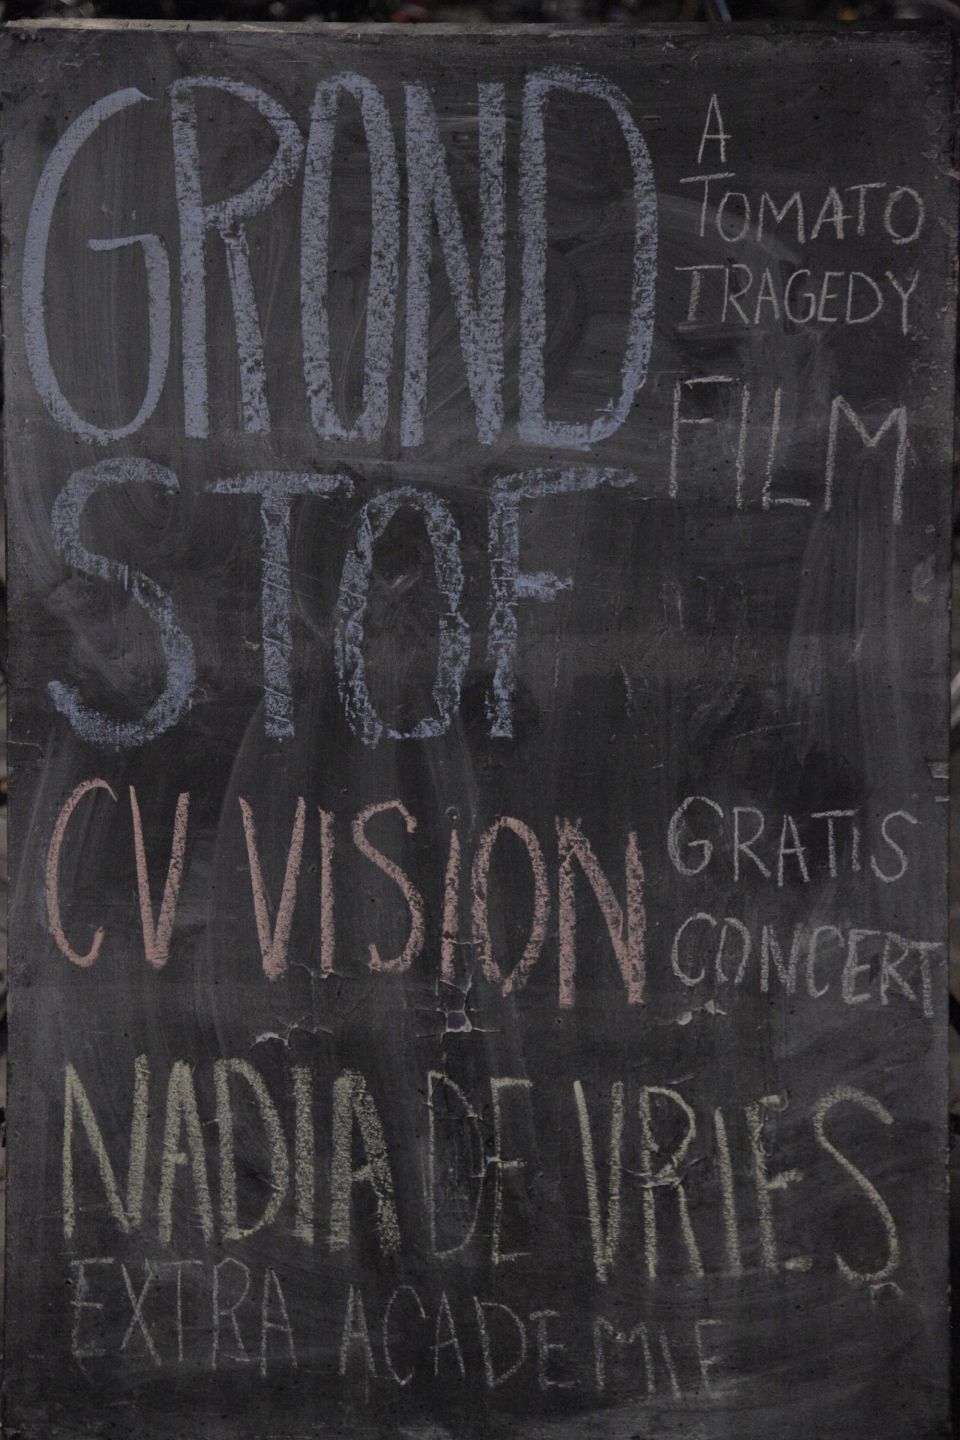 GROND
STOF
A
TOMATO
TRAGEDY
FILM
CV VISION
GRATIS
CONCERT
NADIA DE VRIES
EXTRA ACADEMIE